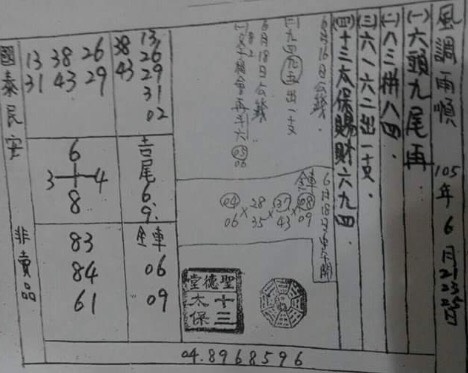 風調雨順
105年6月21 23 25號
(一)六頭九尾再.
(二)八三拼八四.
(三)六一六二出一支.
(四)十三太保賜財六九四.
6月16日公錢.
(二)九四九五出一支
6月18日公錢.
04 × 28 × 37 × 08
06 35 43 09
聖德堂
十三
太保
13 38 26 38 13
31 43 29 43 26
29
31
02
6
3 4
8
吉尾
6.
9.
83
84
61
06
09
國泰民安
非賣品
04.8968596